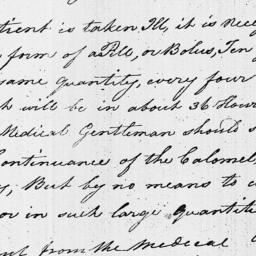 trent is taken Ill, it is nece
form of a Pill, or Bolus, Ten
same quantity, every four
will be in about 36 Hour
Medical Gentleman should s
Continuance of the Calomel,
But by no means to
or in such large Quantite
from the Medical